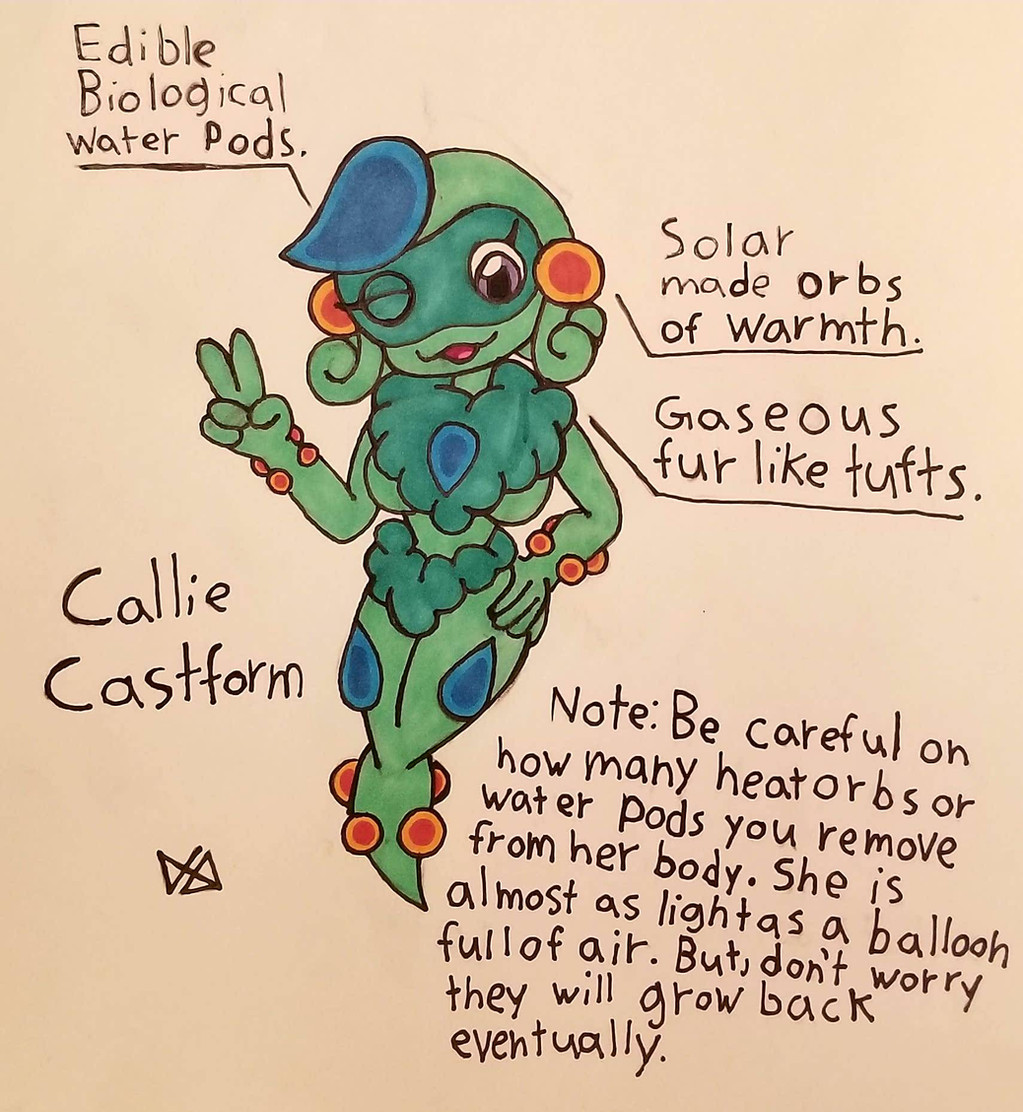 Edible
Biological
Water Pods.
Solar
made orbs
of warmth.
Gaseous
fur like tufts.
Callie
Castform
Note: Be careful on
how many heat orbs or
water pods you remove
from her body. She is
almost as light as a balloon
full of air. But, don't worry
they will grow back
eventually.